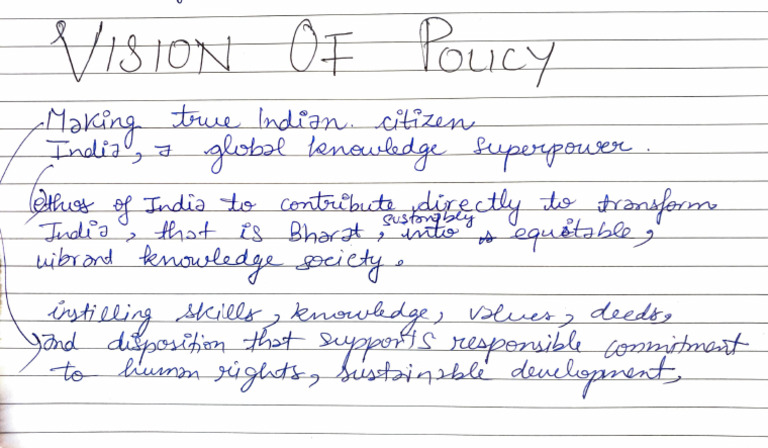 VISION OF POLICY
Making true Indian. citizen
India, a global knowledge superpower.
ethos of India to contribute directly to transform
sustanably
India, that is Bharat, into a equitable,
vibrant knowledge society.
instilling skills, knowledge, values, deeds,
and disposition that supports responsible commitment
to human rights, sustainable development,